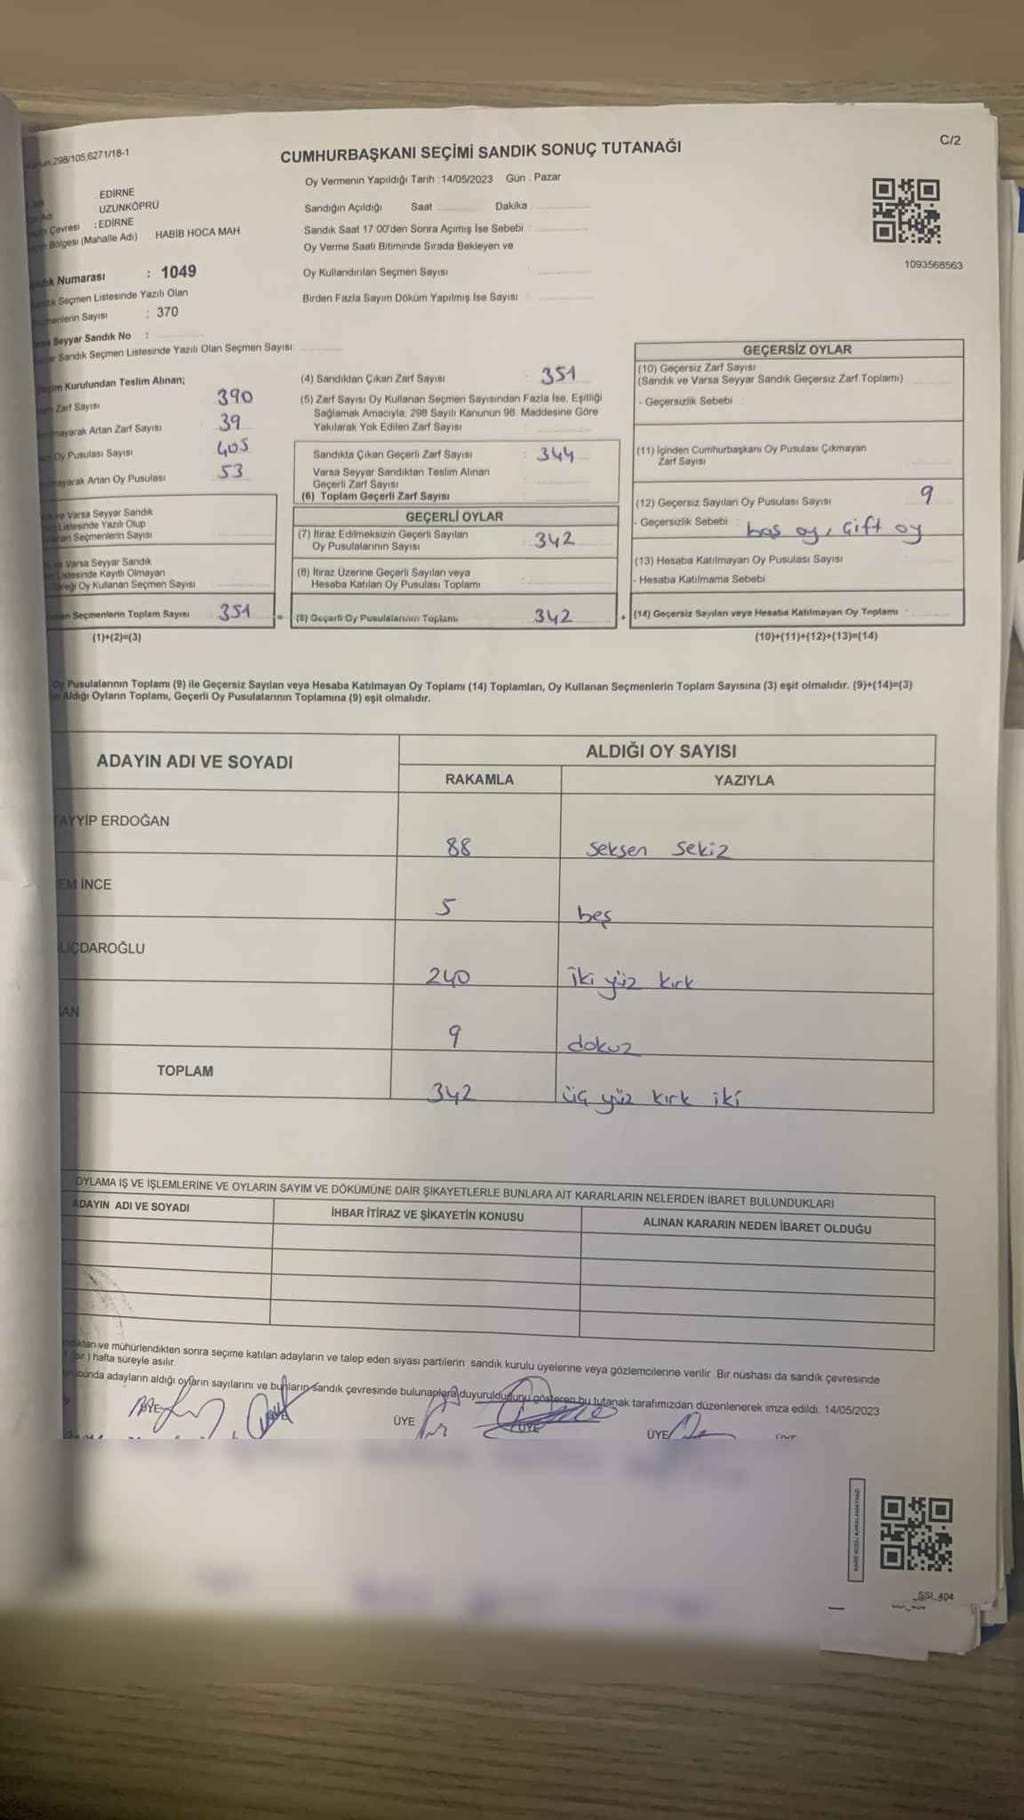 298/105,6271/18-1
C/2
CUMHURBAŞKANI SEÇİMİ SANDIK SONUÇ TUTANAĞI
Oy Vermenin Yapıldığı Tarih :14/05/2023 Gün : Pazar
EDİRNE
UZUNKÖPRÜ
Çevresi : EDİRNE
Bölgesi (Mahalle Adı) HABİB HOCA MAH
Sandığın Açıldığı Saat Dakika
Sandık Saat 17:00'den Sonra Açımış İse Sebebi
Oy Verme Saati Bitiminde Sırada Bekleyen ve
Oy Kullandırılan Seçmen Sayısı
Birden Fazla Sayım Döküm Yapılmış İse Sayısı
1093568563
Numarası : 1049
Seçmen Listesinde Yazılı Olan
Sayısı : 370
Seyyar Sandık No :
Sandık Seçmen Listesinde Yazılı Olan Seçmen Sayısı
Kurulundan Teslim Alınan;
Zarf Sayısı 390
Artan Zarf Sayısı 39
Oy Pusulası Sayısı 405
Artan Oy Pusulası 53
ve Varsa Seyyar Sandık
Listesinde Yazılı Olup
Seçmenlerin Sayısı
Varsa Seyyar Sandık
Kayıtlı Olmayan
Oy Kullanan Seçmen Sayısı
Seçmenlerin Toplam Sayısı 351
(1)+(2)=(3)
(4) Sandıktan Çıkan Zarf Sayısı : 351
(5) Zarf Sayısı Oy Kullanan Seçmen Sayısından Fazla İse, Eşitliği
Sağlamak Amacıyla, 298 Sayılı Kanunun 98. Maddesine Göre
Yakılarak Yok Edilen Zarf Sayısı
Sandıkta Çıkan Geçerli Zarf Sayısı : 344
Varsa Seyyar Sandıktan Teslim Alınan
Geçerli Zarf Sayısı
(6) Toplam Geçerli Zarf Sayısı
GEÇERLİ OYLAR
(7) İtiraz Edilmeksizin Geçerli Sayılan
Oy Pusulalarının Sayısı : 342
(8) İtiraz Üzerine Geçerli Sayılan veya
Hesaba Katılan Oy Pusulası Toplamı
= (9) Geçerli Oy Pusulalarının Toplamı 342
GEÇERSİZ OYLAR
(10) Geçersiz Zarf Sayısı
(Sandık ve Varsa Seyyar Sandık Geçersiz Zarf Toplamı)
- Geçersizlik Sebebi
(11) İçinden Cumhurbaşkanı Oy Pusulası Çıkmayan
Zarf Sayısı
(12) Geçersiz Sayılan Oy Pusulası Sayısı 9
- Geçersizlik Sebebi : boş oy, çift oy
(13) Hesaba Katılmayan Oy Pusulası Sayısı
- Hesaba Katılmama Sebebi
+ (14) Geçersiz Sayılan veya Hesaba Katılmayan Oy Toplamı
(10)+(11)+(12)+(13)=(14)
Oy Pusulalarının Toplamı (9) ile Geçersiz Sayılan veya Hesaba Katılmayan Oy Toplamı (14) Toplamları, Oy Kullanan Seçmenlerin Toplam Sayısına (3) eşit olmalıdır. (9)+(14)=(3)
Aldığı Oyların Toplamı, Geçerli Oy Pusulalarının Toplamına (9) eşit olmalıdır.
ADAYIN ADI VE SOYADI
ALDIĞI OY SAYISI
RAKAMLA YAZIYLA
TAYYİP ERDOĞAN 88 seksen sekiz
EM İNCE 5 beş
LIÇDAROĞLU 240 iki yüz kırk
AN 9 dokuz
TOPLAM 342 üç yüz kırk iki
OYLAMA İŞ VE İŞLEMLERİNE VE OYLARIN SAYIM VE DÖKÜMÜNE DAİR ŞİKAYETLERLE BUNLARA AİT KARARLARIN NELERDEN İBARET BULUNDUKLARI
ADAYIN ADI VE SOYADI İHBAR İTİRAZ VE ŞİKAYETİN KONUSU ALINAN KARARIN NEDEN İBARET OLDUĞU
ve mühürlendikten sonra seçime katılan adayların ve talep eden siyasi partilerin sandık kurulu üyelerine veya gözlemcilerine verilir. Bir nüshası da sandık çevresinde
(bir) hafta süreyle asılır.
adayların aldığı oyların sayılarını ve bunların sandık çevresinde bulunanlara duyurulduğunu gösteren bu tutanak tarafımızdan düzenlenerek imza edildi. 14/05/2023
ÜYE ÜYE ÜYE
SSI_404